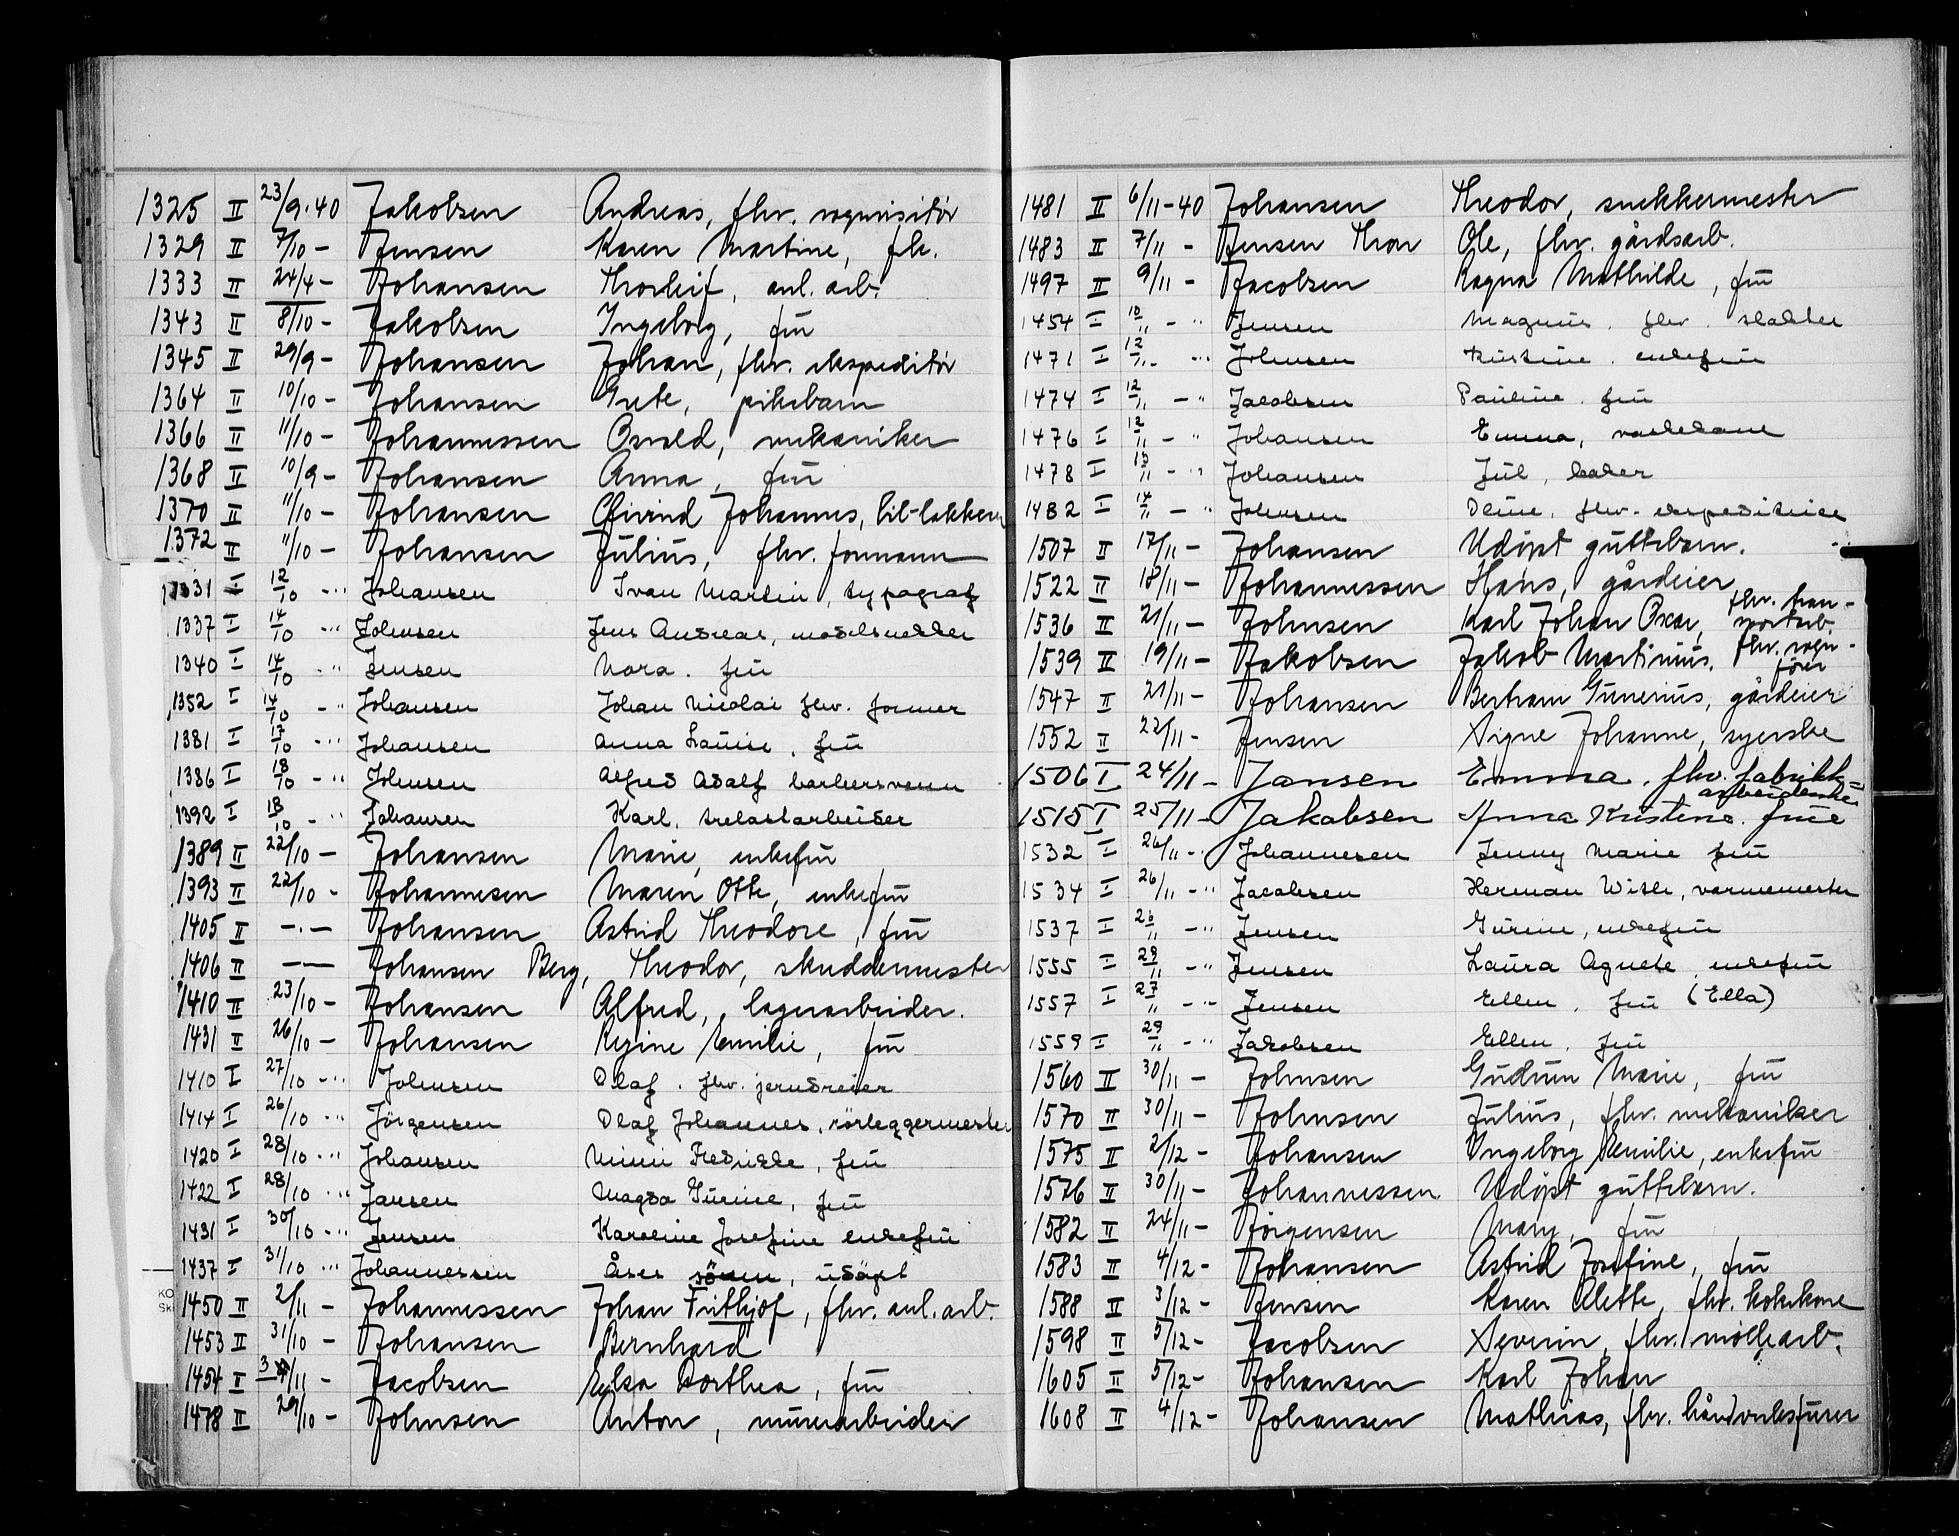 1325 II 23/9-40 Jakobsen Andreas, fhv. rekvisitør
1329 II 7/10 - Jensen Karen Martine, frk.
1333 II 24/4 - Johansen Thorleif, anl. arb.
1343 II 8/10 - Jakobsen Ingeborg, fru
1345 II 29/9 - Johansen Johan, fhv. ekspeditør
1364 II 10/10 - Johansen Grete, pikebarn
1366 II 11/10 - Johannessen Osvald, mekaniker
1368 II 10/9 - Johansen Anna, fru
1370 II 11/10 - Johansen Eivind Johannes, bil-lakkerer
1372 II 11/10 - Johansen Julius, fhv. formann
1331 I 12/10 - " Johansen Ivan Martin, typograf
1337 I 14/10 - " Johnsen Jens Andreas, modelsnekker
1340 I 14/10 - " Jensen Nora. fru
1352 I 14/10 - " Johansen Johan Nicolai fhv. former
1381 I 17/10 - " Johansen Anna Louise. fru
1386 I 18/10 - " Johnsen Alfred Adolf barbersvenn
1392 I 18/10 - " Johansen Karl. trelastarbeider
1389 II 22/10 - Johansen Marie, enkefru
1393 II 22/10 - Johannesen Maren Otte, enkefru
1405 II -·- Johansen Astrid Theodore, fru
1406 II -- Johansen Berg, Theodor, skreddermester
1410 II 23/10 - Johansen Alfred, lagerarbeider.
1431 II 26/10 - Johansen Regine Emilie, fru
1410 I 27/10 - " Johnsen Olaf. fhv. jerndreier
1414 I 26/10 - " Jörgensen Olaf Johannes, rörleggermester
1420 I 28/10 - " Johansen Mimi Fredrikke, fru
1422 I 28/10 - " Jansen Magda Gurine, fru
1431 I 30/10 - " Jensen Karoline Josefine enkefru
1437 I 31/10 - " Johannessen Åses sönn, udöpt
1450 II 2/11 - Johannessen Johan Frithjof, fhv. anl. arb.
1453 II 31/10 - Johansen Bernhard
1454 II 3/11 - Jacobsen Elsa Dorthea, fru
1478 II 29/10 - Johnsen Anton, murerarbeider
1481 II 6/11-40 Johansen Theodor, snekkermester
1483 II 7/11 - Jensen Thon Ole, fhv. gårdsarb.
1497 II 9/11 - Jacobsen Ragna Mathilde, fru
1454 I 10/11 - " Jensen Magnus. fhv. slakter
1471 I 12/11 - " Johnsen Kristine. enkefru
1474 I 12/11 - " Jacobsen Pauline. fru
1476 I 12/11 - " Johansen Emma, vaskekone
1478 I 13/11 - " Johansen Jul, baker
1482 I 14/11 - " Johnsen Oline, fhv. ekspeditrice
1507 II 17/11 - Johansen Udöpt guttebarn.
1522 II 18/11 - Johannessen Hans, gårdeier
1536 II 21/11 - Johnsen Karl Johan Oscar, fhv. tran-
sportarb.
1539 II 19/11 - Jakobsen Jakob Martinius. fhv. vogn-
fører
1547 II 21/11 - Johansen Bertram Gunerius, gårdeier
1552 II 22/11 - Jensen Signe Johanne, syerske
1506 I 24/11 - Jansen Emma. fhv. fabrikk-
arbeiderske.
1515 I 25/11 - Jakobsen Anna Kristine. frue
1532 I 26/11 - " Johannesen Jenny Marie fru
1534 I 26/11 - " Jacobsen Herman Wisle, varmemester
1537 I 26/11 - " Jensen Gurine, enkefru
1555 I 29/11 - " Jensen Laura Agnete, enkefru
1557 I 27/11 - " Jensen Ellen. fru (Ella)
1559 I 29/11 - " Jakobsen Ellen. fru
1560 II 30/11 - Johnsen Gudrun Marie, fru
1570 II 30/11 - Johnsen Julius, fhv. mekaniker
1575 II 2/12 - Johansen Ingeborg Emilie, enkefru
1576 II 30/11 - Johannessen Udöpt guttebarn.
1582 II 24/11 - Jörgensen Mary, fru
1583 II 4/12 - Johansen Astrid Josefine, fru
1588 II 3/12 - Jensen Karen Alette, fhv. kokekone
1598 II 5/12 - Jacobsen Severin, fhv. møllearb.
1605 II 5/12 - Johansen Karl Johan
1608 II 4/12 - Johansen Mathias, fhv. håndverksfører